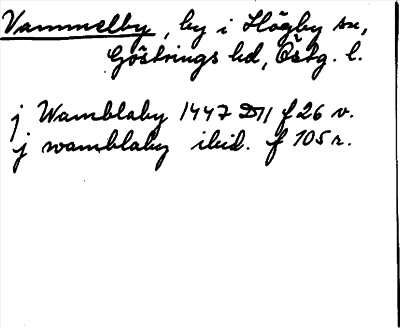 Vammelby, by i Högby sn,
Göstrings hd, Östg. l.
j Wamblaby 1447 D11 f 26 v.
j wamblaby ibid. f 105 r.